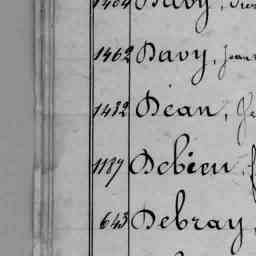 1462 Davy, Jean
1432 Dean,
1187 Debien,
643 Debray,